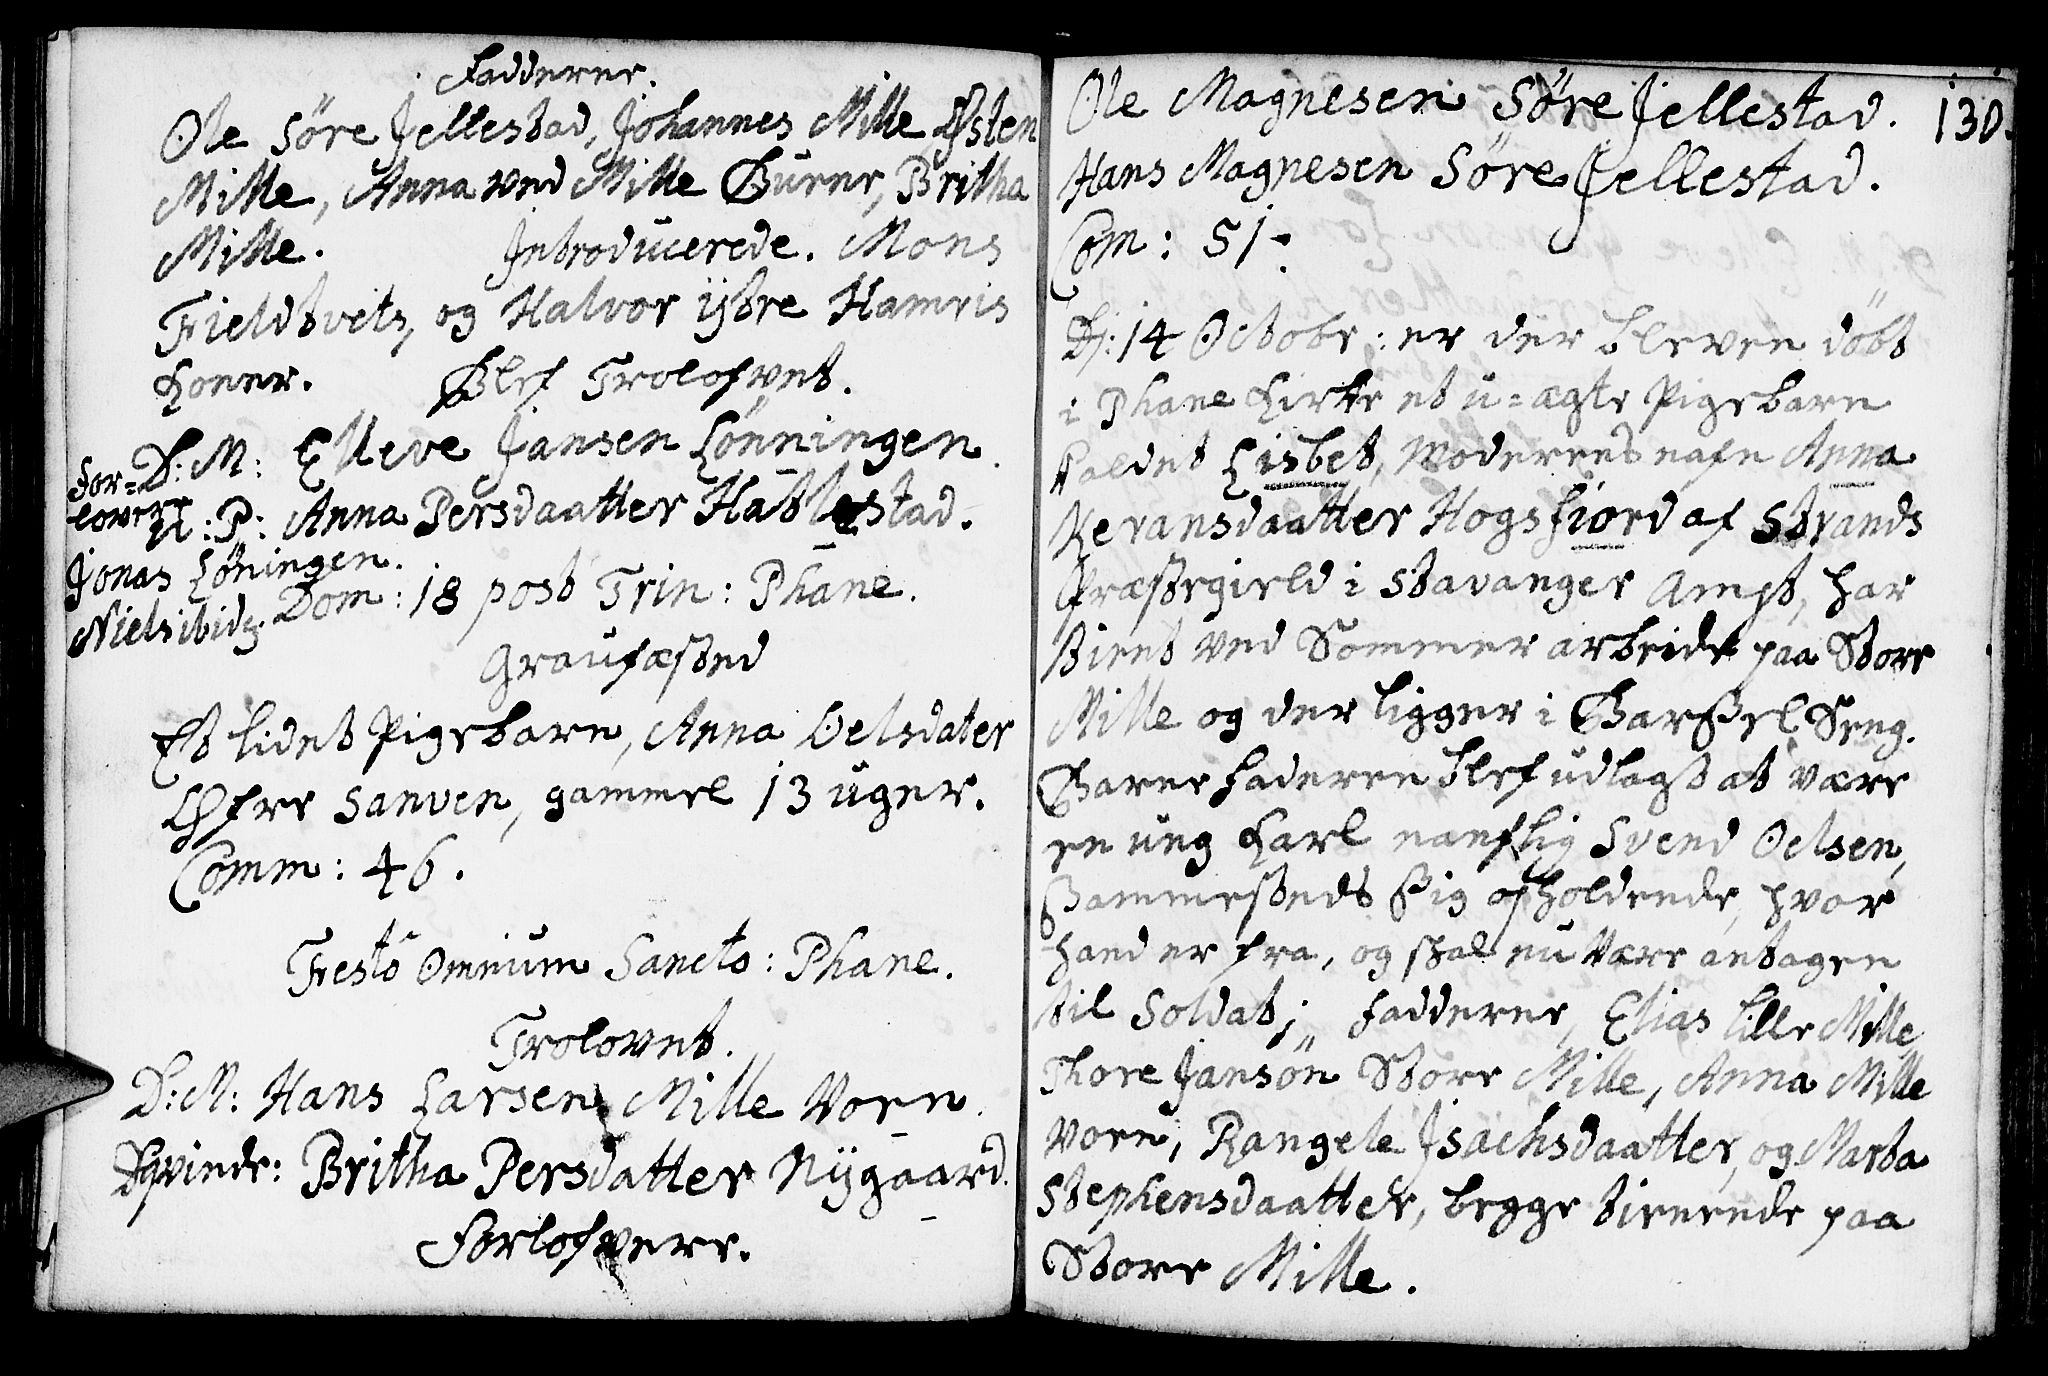 Fadderer.
Ole Søre Jellestad, Johannes Mille, Østen
Mille, Anna ved Mille Burer, Britha
Mille. Introducerede. Mons
Fieldtvets, og Halvor ijtre Hamris
Koner. Blef Trolofvet.
D: M: Elleve Jansen Lønningen.
For=
lovere
U: P: Anna Persdaatter Hatlestad.
Jonas Løningen.
Niels ibid.
Dom: 18 post Trin: Phane.
Graufæsted
Et lidet Pigebarn, Anna Oelsdater
Øfre Sanven, gammel 13 uger.
Comm: 46.
Festo Omnium Sancto: Phane.
Trolovet.
D: M: Hans Larsen Mille Vorn.
Qvinde: Britha Persdatter Nÿgaard.
Forlofvere.
130.
Ole Magnesen Søre Jellestad.
Hans Magnesen Søre Jellestad.
Com: 51.
D: 14 Octobr: er der bleven døbt
i Phane Kirke et u=ægte Pigebarn
kaldet Lisbet, Moderens nafn Anna
Revansdaatter Hogsfiord af Strands
Præstegield i Stavanger Ampt, har
tient ved Sommer arbeide paa Store
Mille og der ligger i Barsel Seng.
Barne faderen blef udlagt at være
en ung Karl nanflig Svend Oelsen,
Sammesteds sig opholdende, hvor
hand er fra, og skal nu være antagen
til Soldat; Fadderer, Elias lille Mille,
Thore Jansøn Store Mille, Anna Mille
Vorn, Rangele Isachsdaatter, og Marta
Stephensdaatter, begge tienende paa
Store Mille.